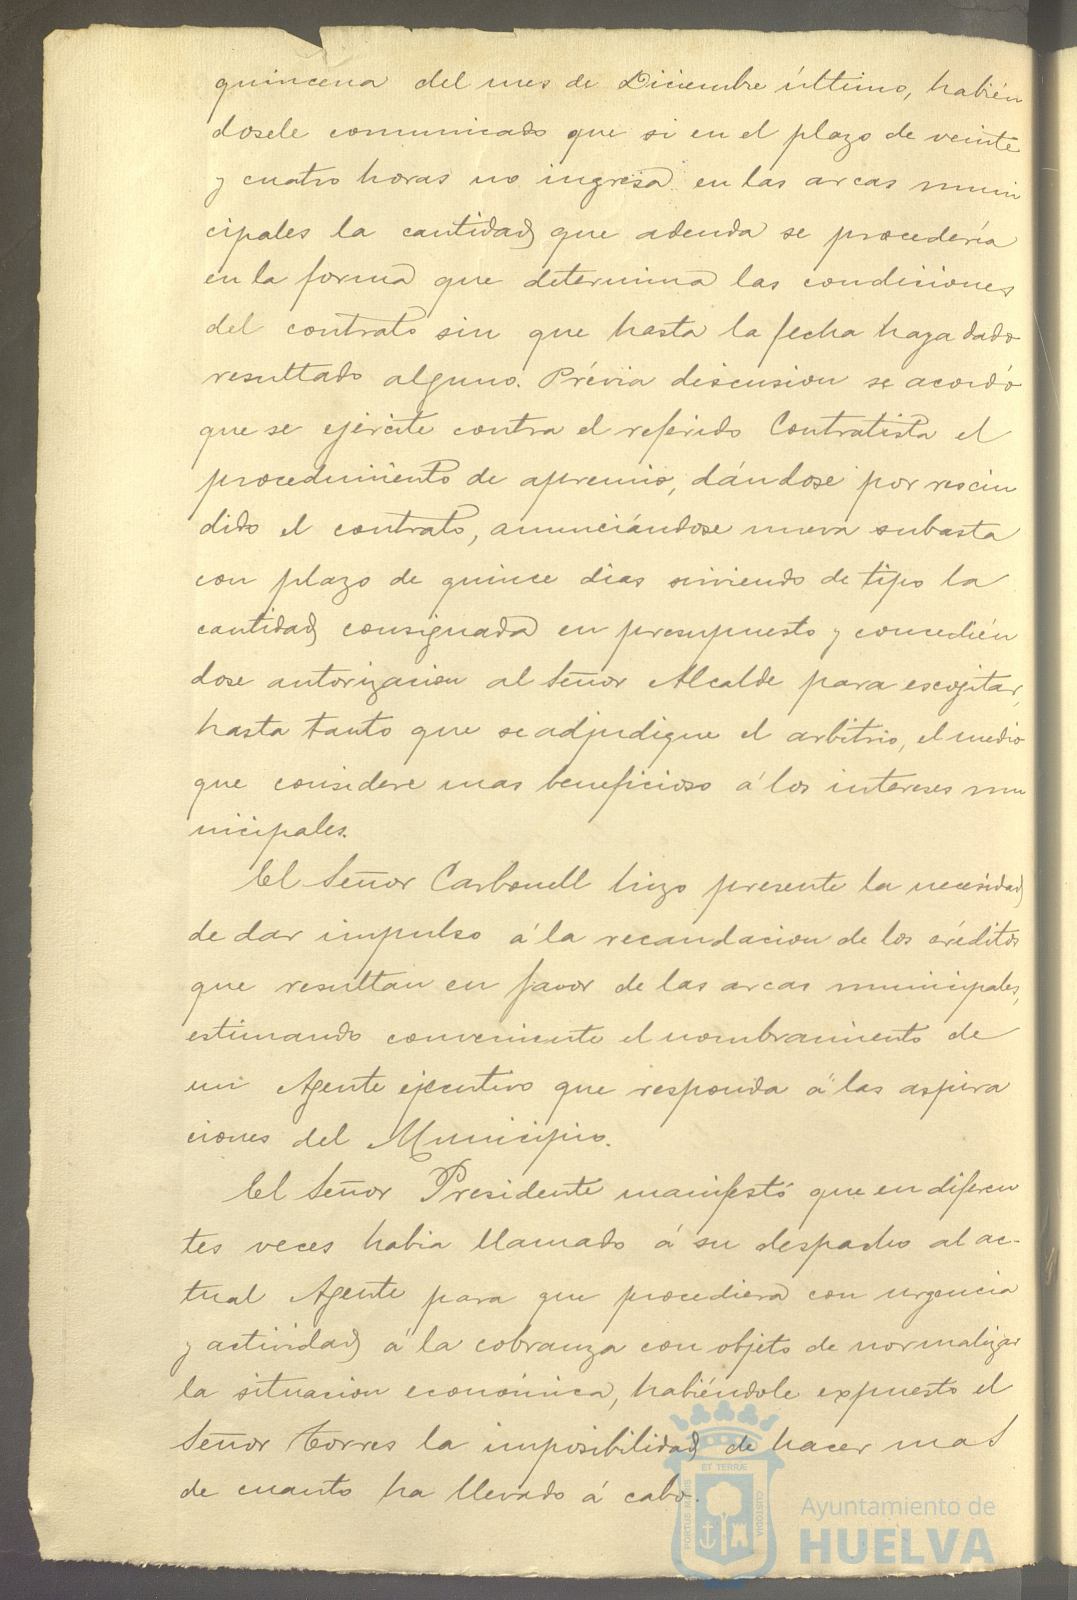 quincena del mes de Diciembre último, habién
dosele comunicado que si en el plazo de veinte
y cuatro horas no ingresa en las arcas muni
cipales la cantidad que adeuda se procedería
en la forma que determina las condiciones
del contrato sin que hasta la fecha haya dado
resultado alguno. Prévia discusion se acordó
que se ejercite contra el referido Contratista el
procedimiento de apremio, dándose por rescin
dido el contrato, anunciándose nueva subasta
con plazo de quince dias sirviendo de tipo la
cantidad consignada en presupuesto y concedién
dose autorizacion al Señor Alcalde para escogitar,
hasta tanto que se adjudique el arbitrio, el medio
que considere mas beneficioso á los intereses mu
nicipales.
El Señor Carbonell hizo presente la necesidad
de dar impulso á la recaudacion de los créditos
que resultan en favor de las arcas municipales,
estimando conveniente el nombramiento de
un Agente ejecutivo que responda á las aspira
ciones del Municipio.
El Señor Presidente manifestó que en diferen
tes veces habia llamado á su despacho al ac-
tual Agente para que procediera con urgencia
y actividad á la cobranza con objeto de normalizar
la situacion económica, habiéndole expuesto el
Señor Torres la imposibilidad de hacer mas
de cuanto ha llevado á cabo.
ET TERRÆ
PORTUS MARIS
CUSTODIA
Ayuntamiento de
HUELVA